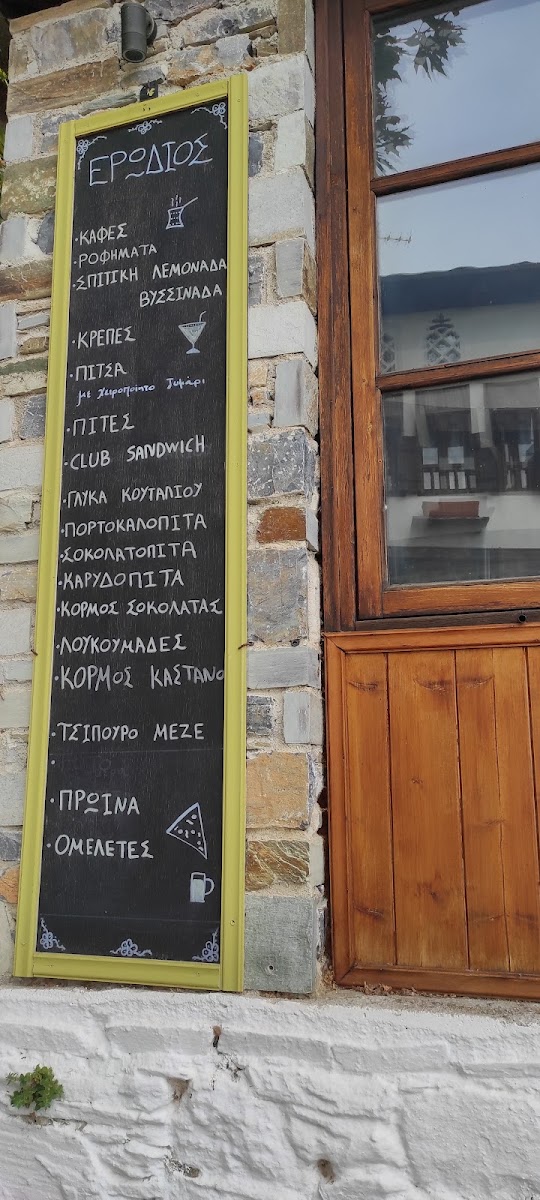 ΕΡΩΔΙΟΣ
·ΚΑΦΕΣ
·ΡΟΦΗΜΑΤΑ
·ΣΠΙΤΙΚΗ ΛΕΜΟΝΑΔΑ
ΒΥΣΣΙΝΑΔΑ
·ΚΡΕΠΕΣ
·ΠΙΤΣΑ
με χειροποίητο ζυμάρι
·ΠΙΤΕΣ
·CLUB SANDWICH
·ΓΛΥΚΑ ΚΟΥΤΑΛΙΟΥ
·ΠΟΡΤΟΚΑΛΟΠΙΤΑ
·ΣΟΚΟΛΑΤΟΠΙΤΑ
·ΚΑΡΥΔΟΠΙΤΑ
·ΚΟΡΜΟΣ ΣΟΚΟΛΑΤΑΣ
·ΛΟΥΚΟΥΜΑΔΕΣ
·ΚΟΡΜΟΣ ΚΑΣΤΑΝΟ
·ΤΣΙΠΟΥΡΟ ΜΕΖΕ
·
·ΠΡΩΙΝΑ
·ΟΜΕΛΕΤΕΣ